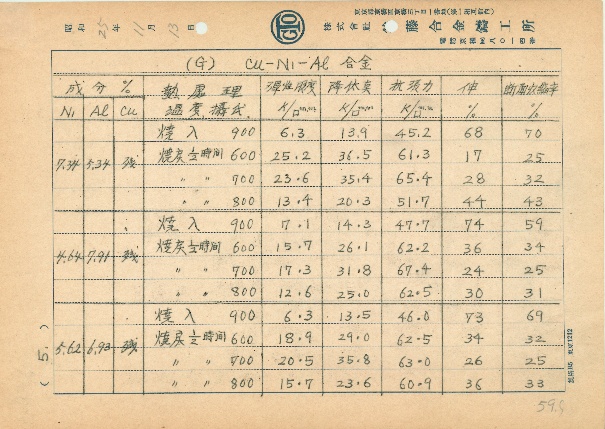 昭和 25 年 11 月 13 日
株式會社 藤合金鑄工所
(G) Cu-Ni-Al 合金
成分 % 熱處理 彈性限度 降伏臭 抗張力 伸 断面収縮率
Ni Al Cu 温度攝氏 K/□m/m K/□m/m K/□m/m % %
焼入 900 6.3 13.9 45.2 68 70
7.34 5.34 残 焼戻½時間 600 25.2 36.5 61.3 17 25
〃 〃 700 23.6 35.4 65.4 28 32
〃 〃 800 13.4 20.3 51.7 44 43
焼入 900 7.1 14.3 47.7 74 59
4.64 7.91 残 焼戻½時間 600 15.7 26.1 62.2 36 34
〃 〃 700 17.3 31.8 67.4 24 25
〃 〃 800 12.6 25.0 62.5 30 31
焼入 900 6.3 13.5 46.0 73 69
5.62 6.93 残 焼戻½時間 600 18.9 29.0 62.5 34 32
〃 〃 700 20.5 35.8 63.0 26 25
〃 〃 800 15.7 23.6 60.9 36 33
(5.)